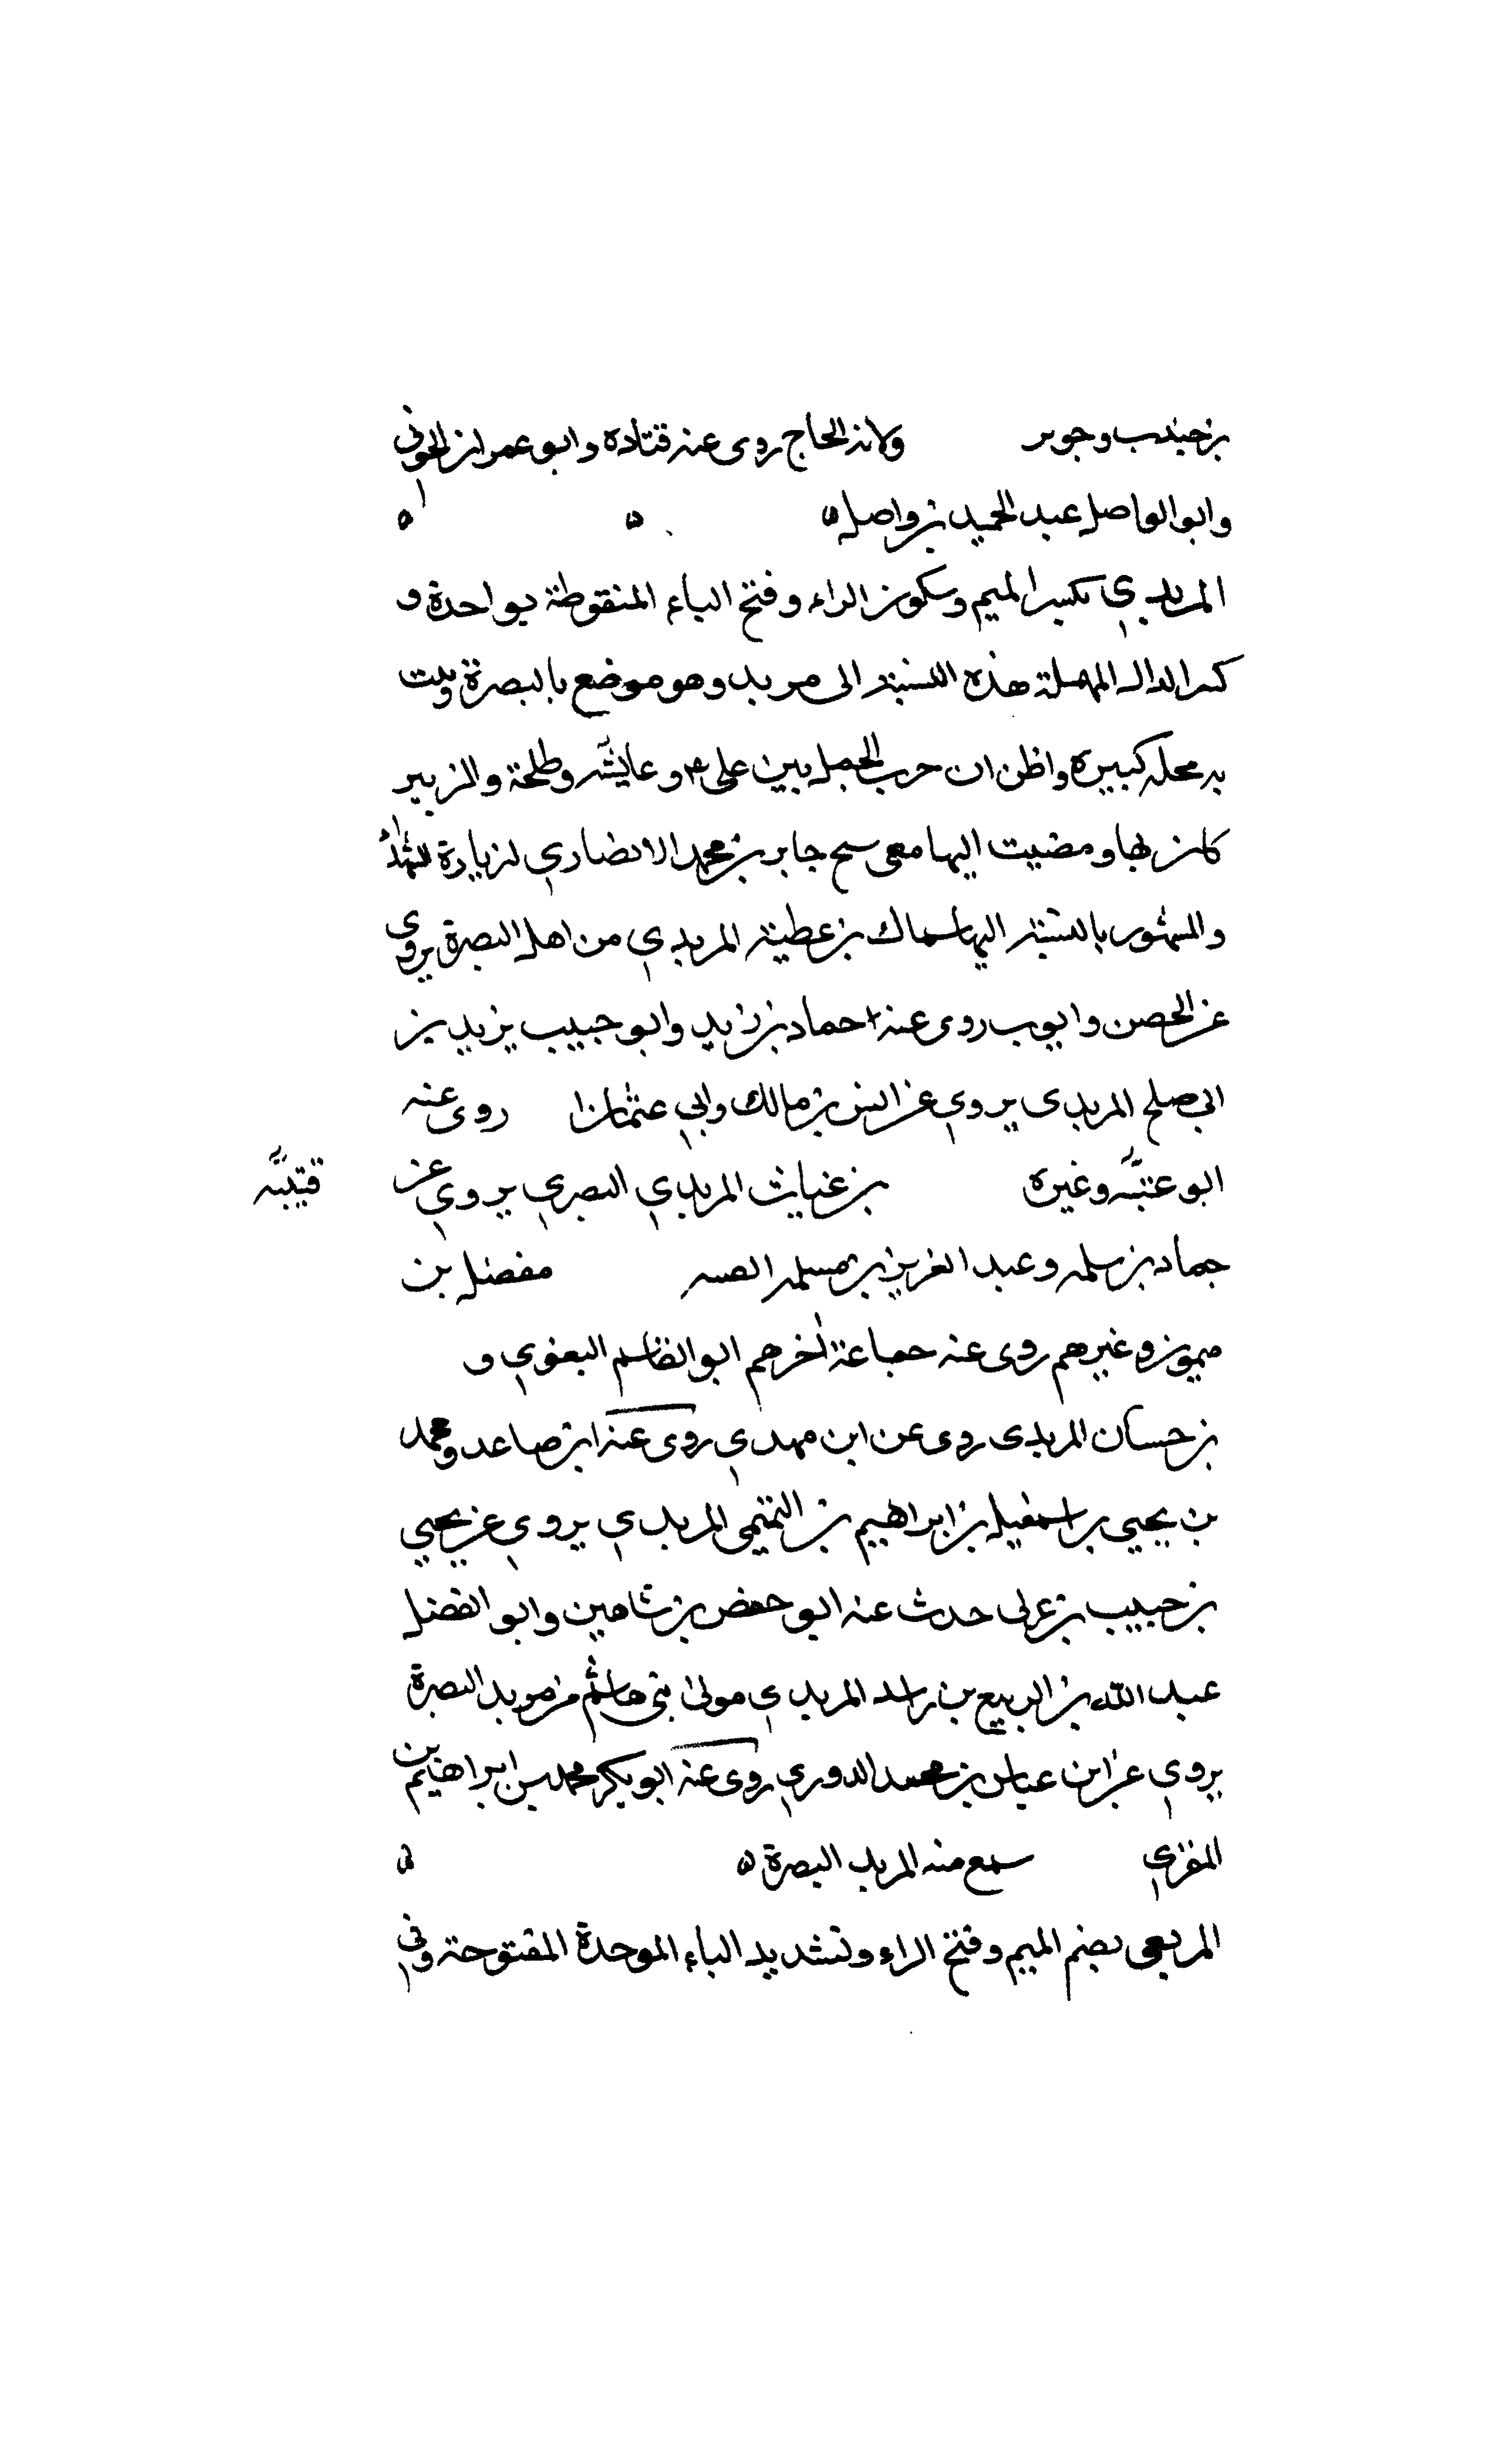 بن جندب وجوير ولاند الحاج روى عنه قتادة وابو عمران الجوني
وابو الواصل عبد الحميد بن واصل ه ه ه
المربدي بكسر الميم وسكون الراء وفتح الباء المنقوطة بواحدة و
كسر الدال المهملة هذه النسبة الى مربد وهو موضع بالبصرة وبيت
به محله كبيرة واظن ان حرب الجمل بين على ع وعايشه وطلحة والزبير
كان بها ومضيت اليها معى جابر بن محمد الانصاري لزيارة
والمشهور بالنسبة اليها سماك بن عطية المربدي من اهل البصرة يروي
عن الحصن وايوب روى عنه حماد بن زيد وابو حبيب يزيد بن
ابي صلح المربدى يروي عن انس بن مالك وابي عثمان روى عنه
ابو عتبه وغيره بن غياث المربدي البصري يروي عن قتيبه
حماد بن سلمه وعبد العزيز بن مسلمه مفضل بن
ميمون وغيرهم روى عنه جماعة اخرهم ابو القاسم البغوي و
بن حسان المربدى روى عن ابن مهدي روى عنه ابن صاعد ومحمد
بن يحيى بن اسمعيل بن ابراهيم بن التميمى المربدي يروي عن يحيي
بن حبيب بن عربى حدث عنه ابو حفص بن شاهين وابو الفضل
عبد الله بن الربيع بن راشد المربدي مولى بني هاشم من مربد البصرة
يروي عن ابن عباس بن محمد الدوري روى عنه ابو بكر محمد بن ابراهيم بن
المقري سمع منه المربد البصرة ه ه
المربعى بضم الميم وفتح الراء وتشديد الباء الموحدة المفتوحة وفي